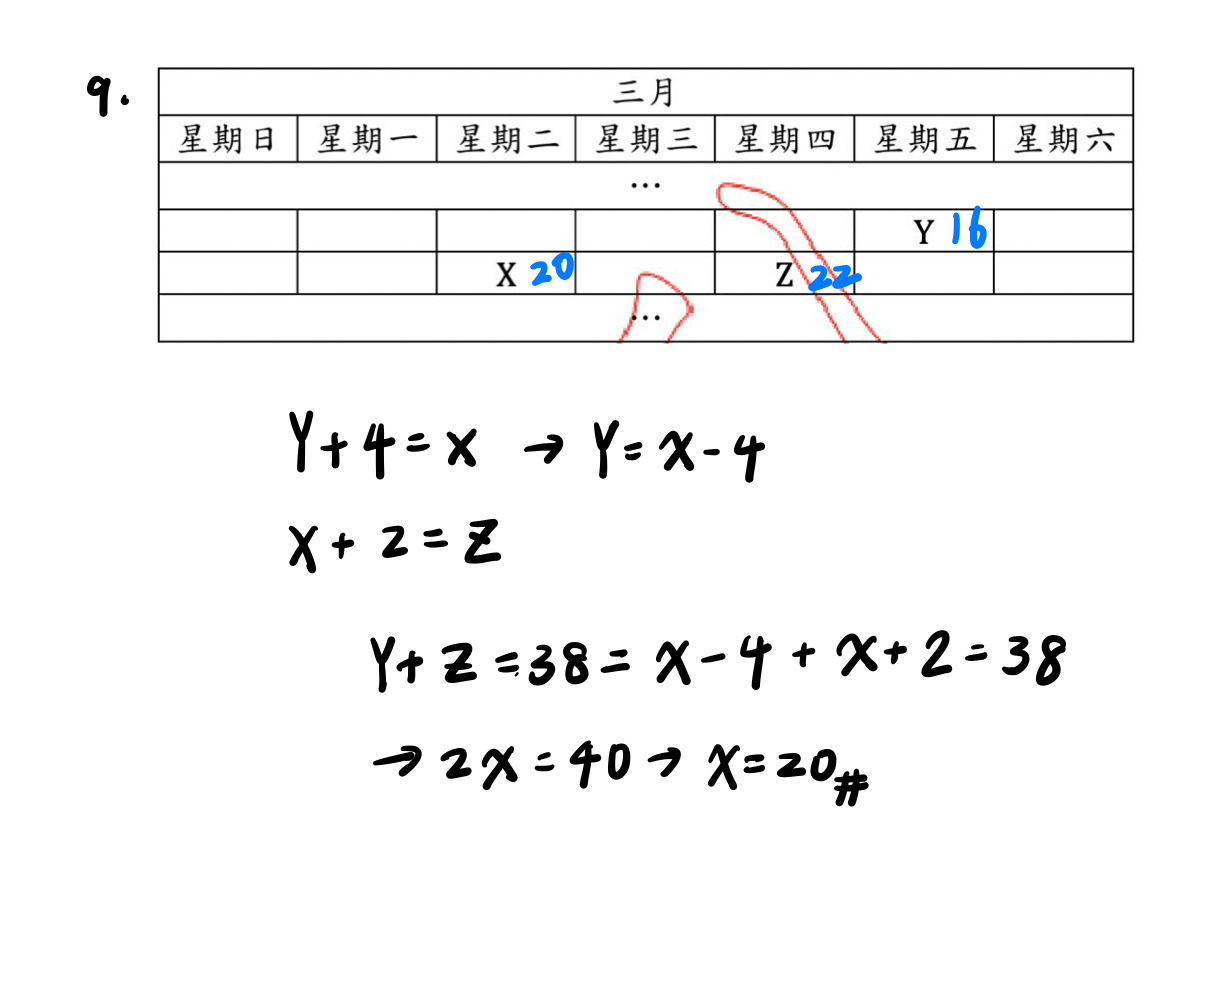 9.
三月
星期日 星期一 星期二 星期三 星期四 星期五 星期六
...
Y 16
X 20 Z 22
...
Y+4=x → Y=x-4
x+2=Z
Y+Z=38=x-4+x+2=38
→2x=40→x=20#